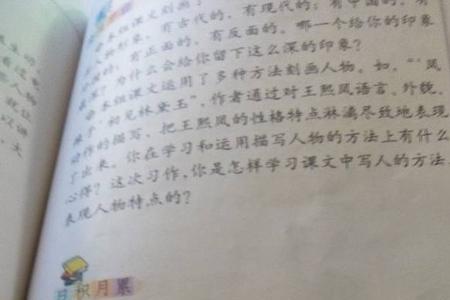 本组课文刻画了
人物形象，有古代的，有现代的；有中国的，有
外国的；有正面的，有反面的。哪一个给你的印象
最深？为什么会给你留下这么深的印象？
本组课文运用了多种方法刻画人物。如，“‘凤
辣子’初见林黛玉”，作者通过对王熙凤语言、外貌、
动作的描写，把王熙凤的性格特点淋漓尽致地表现
了出来。你在学习和运用描写人物的方法上有什么
心得？这次习作，你是怎样学习课文中写人的方法，
表现人物特点的？
日积月累